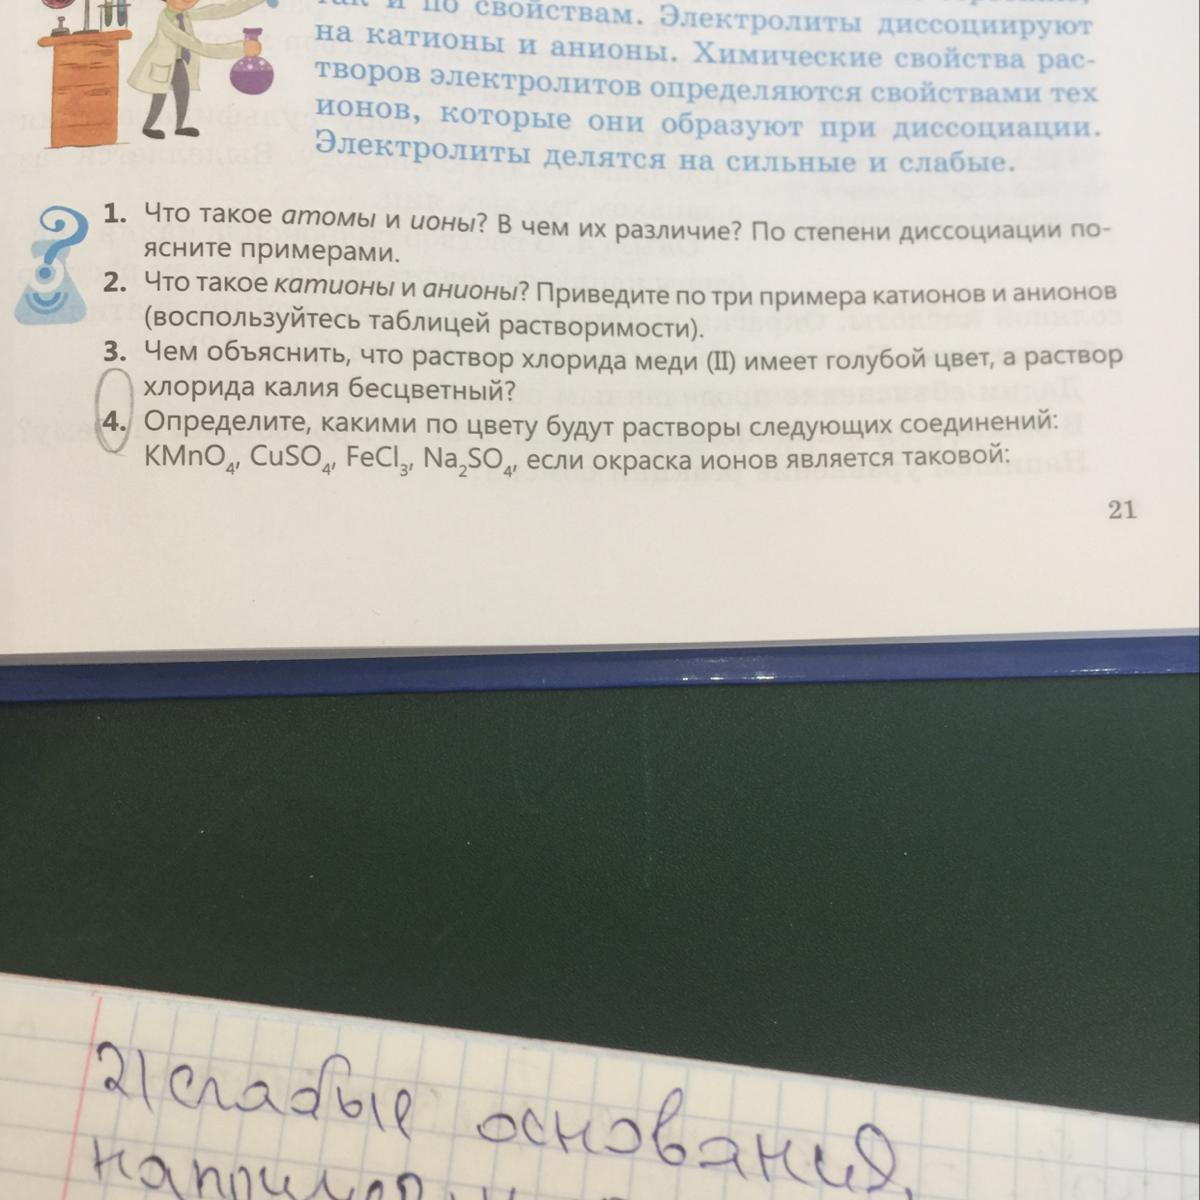 так и по свойствам. Электролиты диссоциируют
на катионы и анионы. Химические свойства рас-
творов электролитов определяются свойствами тех
ионов, которые они образуют при диссоциации.
Электролиты делятся на сильные и слабые.
1. Что такое атомы и ионы? В чем их различие? По степени диссоциации по-
ясните примерами.
2. Что такое катионы и анионы? Приведите по три примера катионов и анионов
(воспользуйтесь таблицей растворимости).
3. Чем объяснить, что раствор хлорида меди (II) имеет голубой цвет, а раствор
хлорида калия бесцветный?
4. Определите, какими по цвету будут растворы следующих соединений:
KMnO₄, CuSO₄, FeCl₃, Na₂SO₄, если окраска ионов является таковой:
21
2) слабые основания,